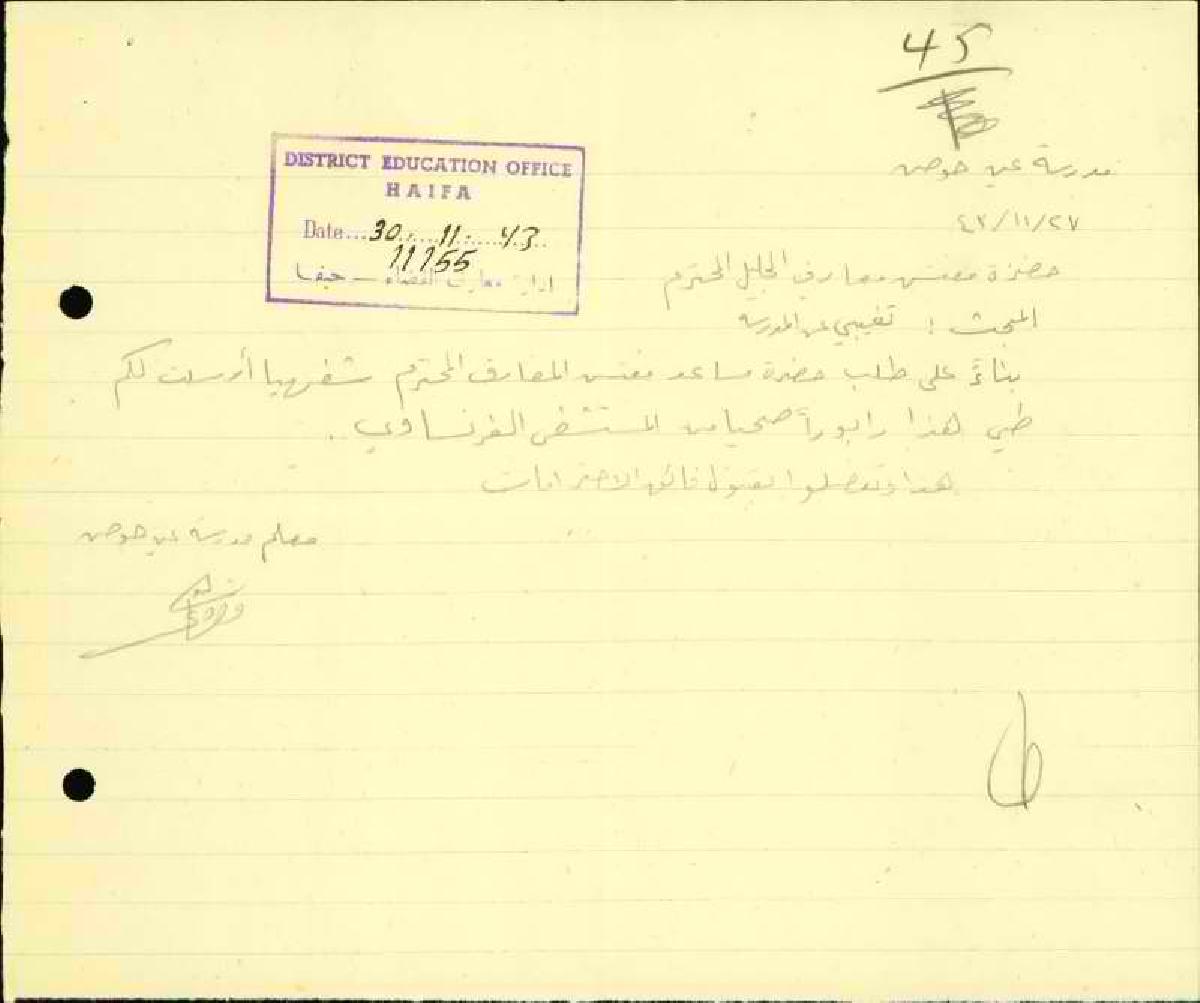 45
مدرسة عين حوض
٤٣/١١/٢٧
DISTRICT EDUCATION OFFICE
HAIFA
Date...30...11...43..
11155
ادارة معارف القضاء – حيفا
حضرة مفتش معارف الجليل المحترم
المبحث : تغيبي عن المدرسة
بناءً على طلب حضرة مساعد مفتش المعارف المحترم شفهيا أرسلت لكم
طي هذا رابوراً صحيا من المستشفى الفرنساوي ..
هذا وتفضلوا بقبول فائق الاحترامات
معلم مدرسة عين حوض